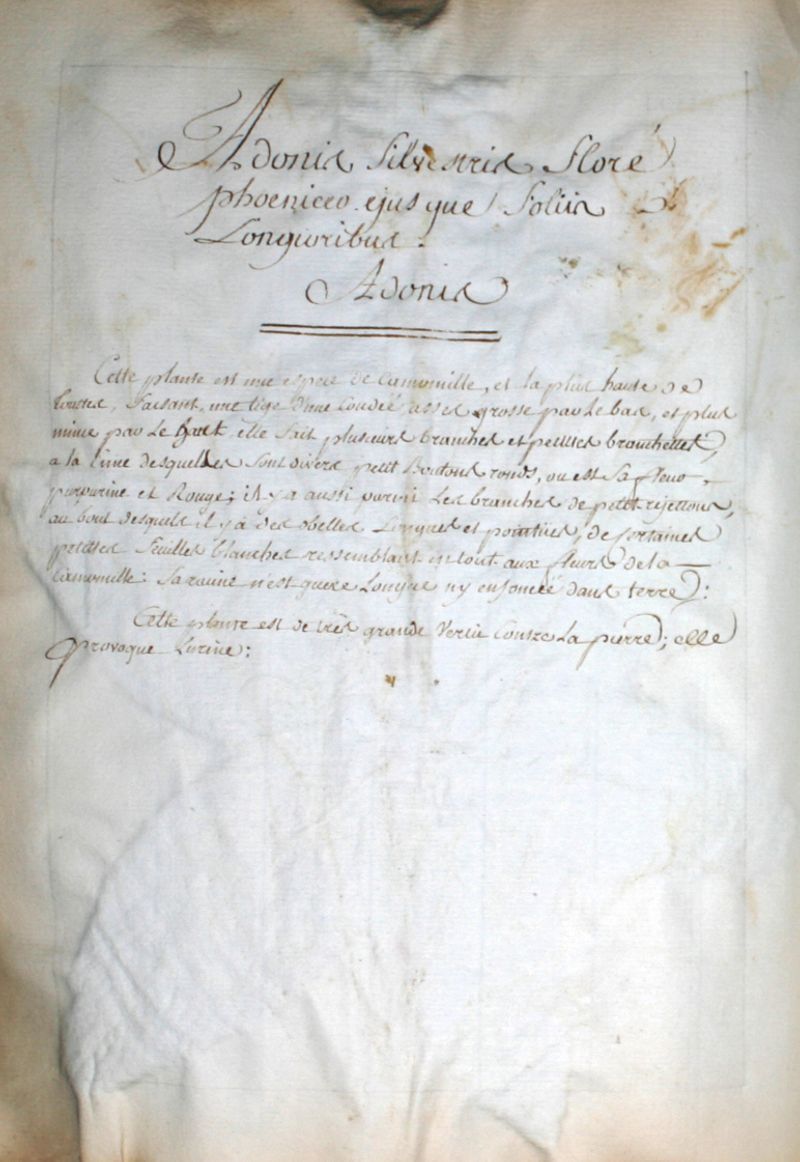 Adonis Silvestris Floré
phoeniceo ejusque foliis
Longioribus.
Adonis
Cette plante est une espece de Camomille, et la plus haute de
toutes, faisant, une tige d'une Coudée asses grosse par le bas, et plus
mince par le haut. elle fait plusieurs branches et petittes branchettes,
a la cime desquelles sont divers petit Boutons ronds, ou est sa fleur
purpurine et Rouge; il y a aussi parmi les branches de petit rejettons,
au bout desquels il y à des Longues et pointues, de sertaines
petittes feuilles blanches ressemblant en tout aux fleurs de la
Camomille: Sa racine n'est guere Longue ny enfoncéé dans terre:
Cette plante est de très grande Vertu Contre La pierre; elle
provoque Lurine: